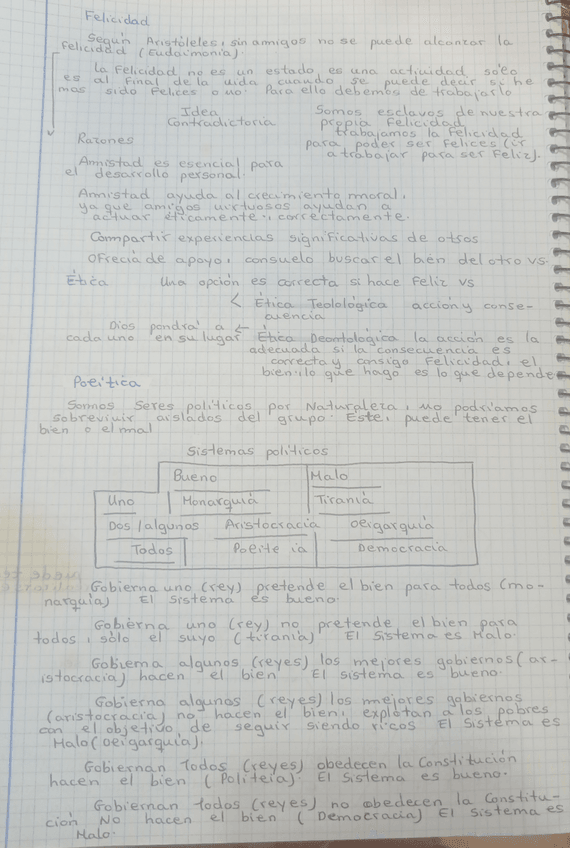 Felicidad
Según Aristóteles, sin amigos no se puede alcanzar la
felicidad (Eudaimonía).
La felicidad no es un estado, es una actividad, sólo
es al final de la vida cuando se puede decir si he
mos sido felices o no. Para ello debemos de trabajarlo
Idea
Contradictoria
Somos esclavos de nuestra
propia felicidad,
trabajamos la felicidad
para poder ser felices (ir
a trabajar para ser feliz).
Razones
Amistad es esencial para
el desarrollo personal.
Amistad ayuda al crecimiento moral,
ya que amigos virtuosos ayudan a
actuar éticamente, correctamente.
Compartir experiencias significativas de otsos
Ofrecia de apoyo, consuelo buscar el bien del otro vs.
Ética Una opción es correcta si hace feliz vs
< Ética Teolológica acción y conse-
cuencia
Dios pondrá a ←
cada uno en su lugar
Ética Deontológica la acción es la
adecuada si la consecuencia es
correcta y consigo felicidad, el
bien, lo que hago es lo que depende
Política
Somos seres políticos por Naturaleza, no podríamos
sobrevivir aislados del grupo. Este, puede tener el
bien o el mal
Sistemas políticos
Bueno Malo
Uno Monarquía Tiranía
Dos/algunos Aristocracia Oligarquía
Todos Polite ía Democracia
Gobierna uno (rey) pretende el bien para todos (mo-
narquía) El sistema es bueno.
Gobierna uno (rey) no pretende el bien para
todos, sólo el suyo (tiranía) El sistema es Malo.
Gobierna algunos (reyes) los mejores gobiernos (ar-
istocracia) hacen el bien El sistema es bueno.
Gobierna algunos (reyes) los mejores gobiernos
(aristocracia) no hacen el bien, explotan a los pobres
con el objetivo de seguir siendo ricos El sistema es
Malo (oligarquía).
Gobiernan todos (reyes) obedecen la Constitución
hacen el bien (Politeía). El sistema es bueno.
Gobiernan todos (reyes) no obedecen la Constitu-
ción NO hacen el bien (Democracia) El sistema es
Malo.